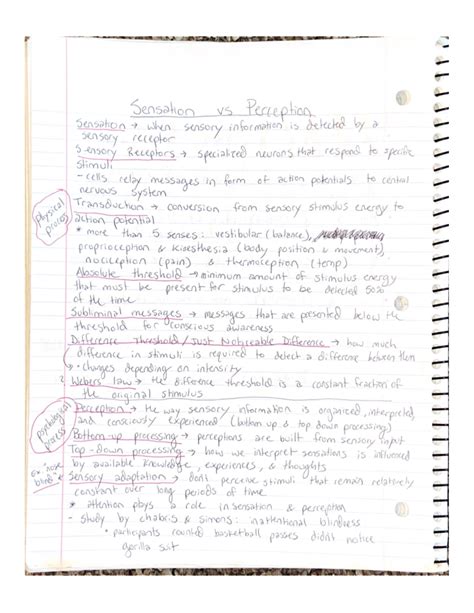 Sensation vs Perception
Sensation → when sensory information is detected by a
sensory receptor
Sensory Receptors → specialized neurons that respond to specific
stimuli
- cells relay messages in form of action potentials to central
nervous system
Physical process
Transduction → conversion from sensory stimulus energy to
action potential
* more than 5 senses: vestibular (balance),
proprioception & kinesthesia (body position & movement),
nociception (pain) & thermoception (temp)
Absolute threshold → minimum amount of stimulus energy
that must be present for stimulus to be detected 50%
of the time
Subliminal messages → messages that are presented below the
threshold for conscious awareness
Difference threshold/Just Noticeable Difference → how much
difference in stimuli is required to detect a difference between them
• changes depending on intensity
Webers law → the difference threshold is a constant fraction of
the original stimulus
Psychological process
Perception → the way sensory information is organized, interpreted,
and consciously experienced (bottom up & top down processing)
Bottom-up processing → perceptions are built from sensory input
Top-down processing → how we interpret sensations is influenced
by available knowledge, experiences, & thoughts
Ex "nose blind"
Sensory adaptation → don't perceive stimuli that remain relatively
constant over long periods of time
* attention plays a role in sensation & perception
- study by chabris & simons: inattentional blindness
* participants counted basketball passes didn't notice
gorilla suit